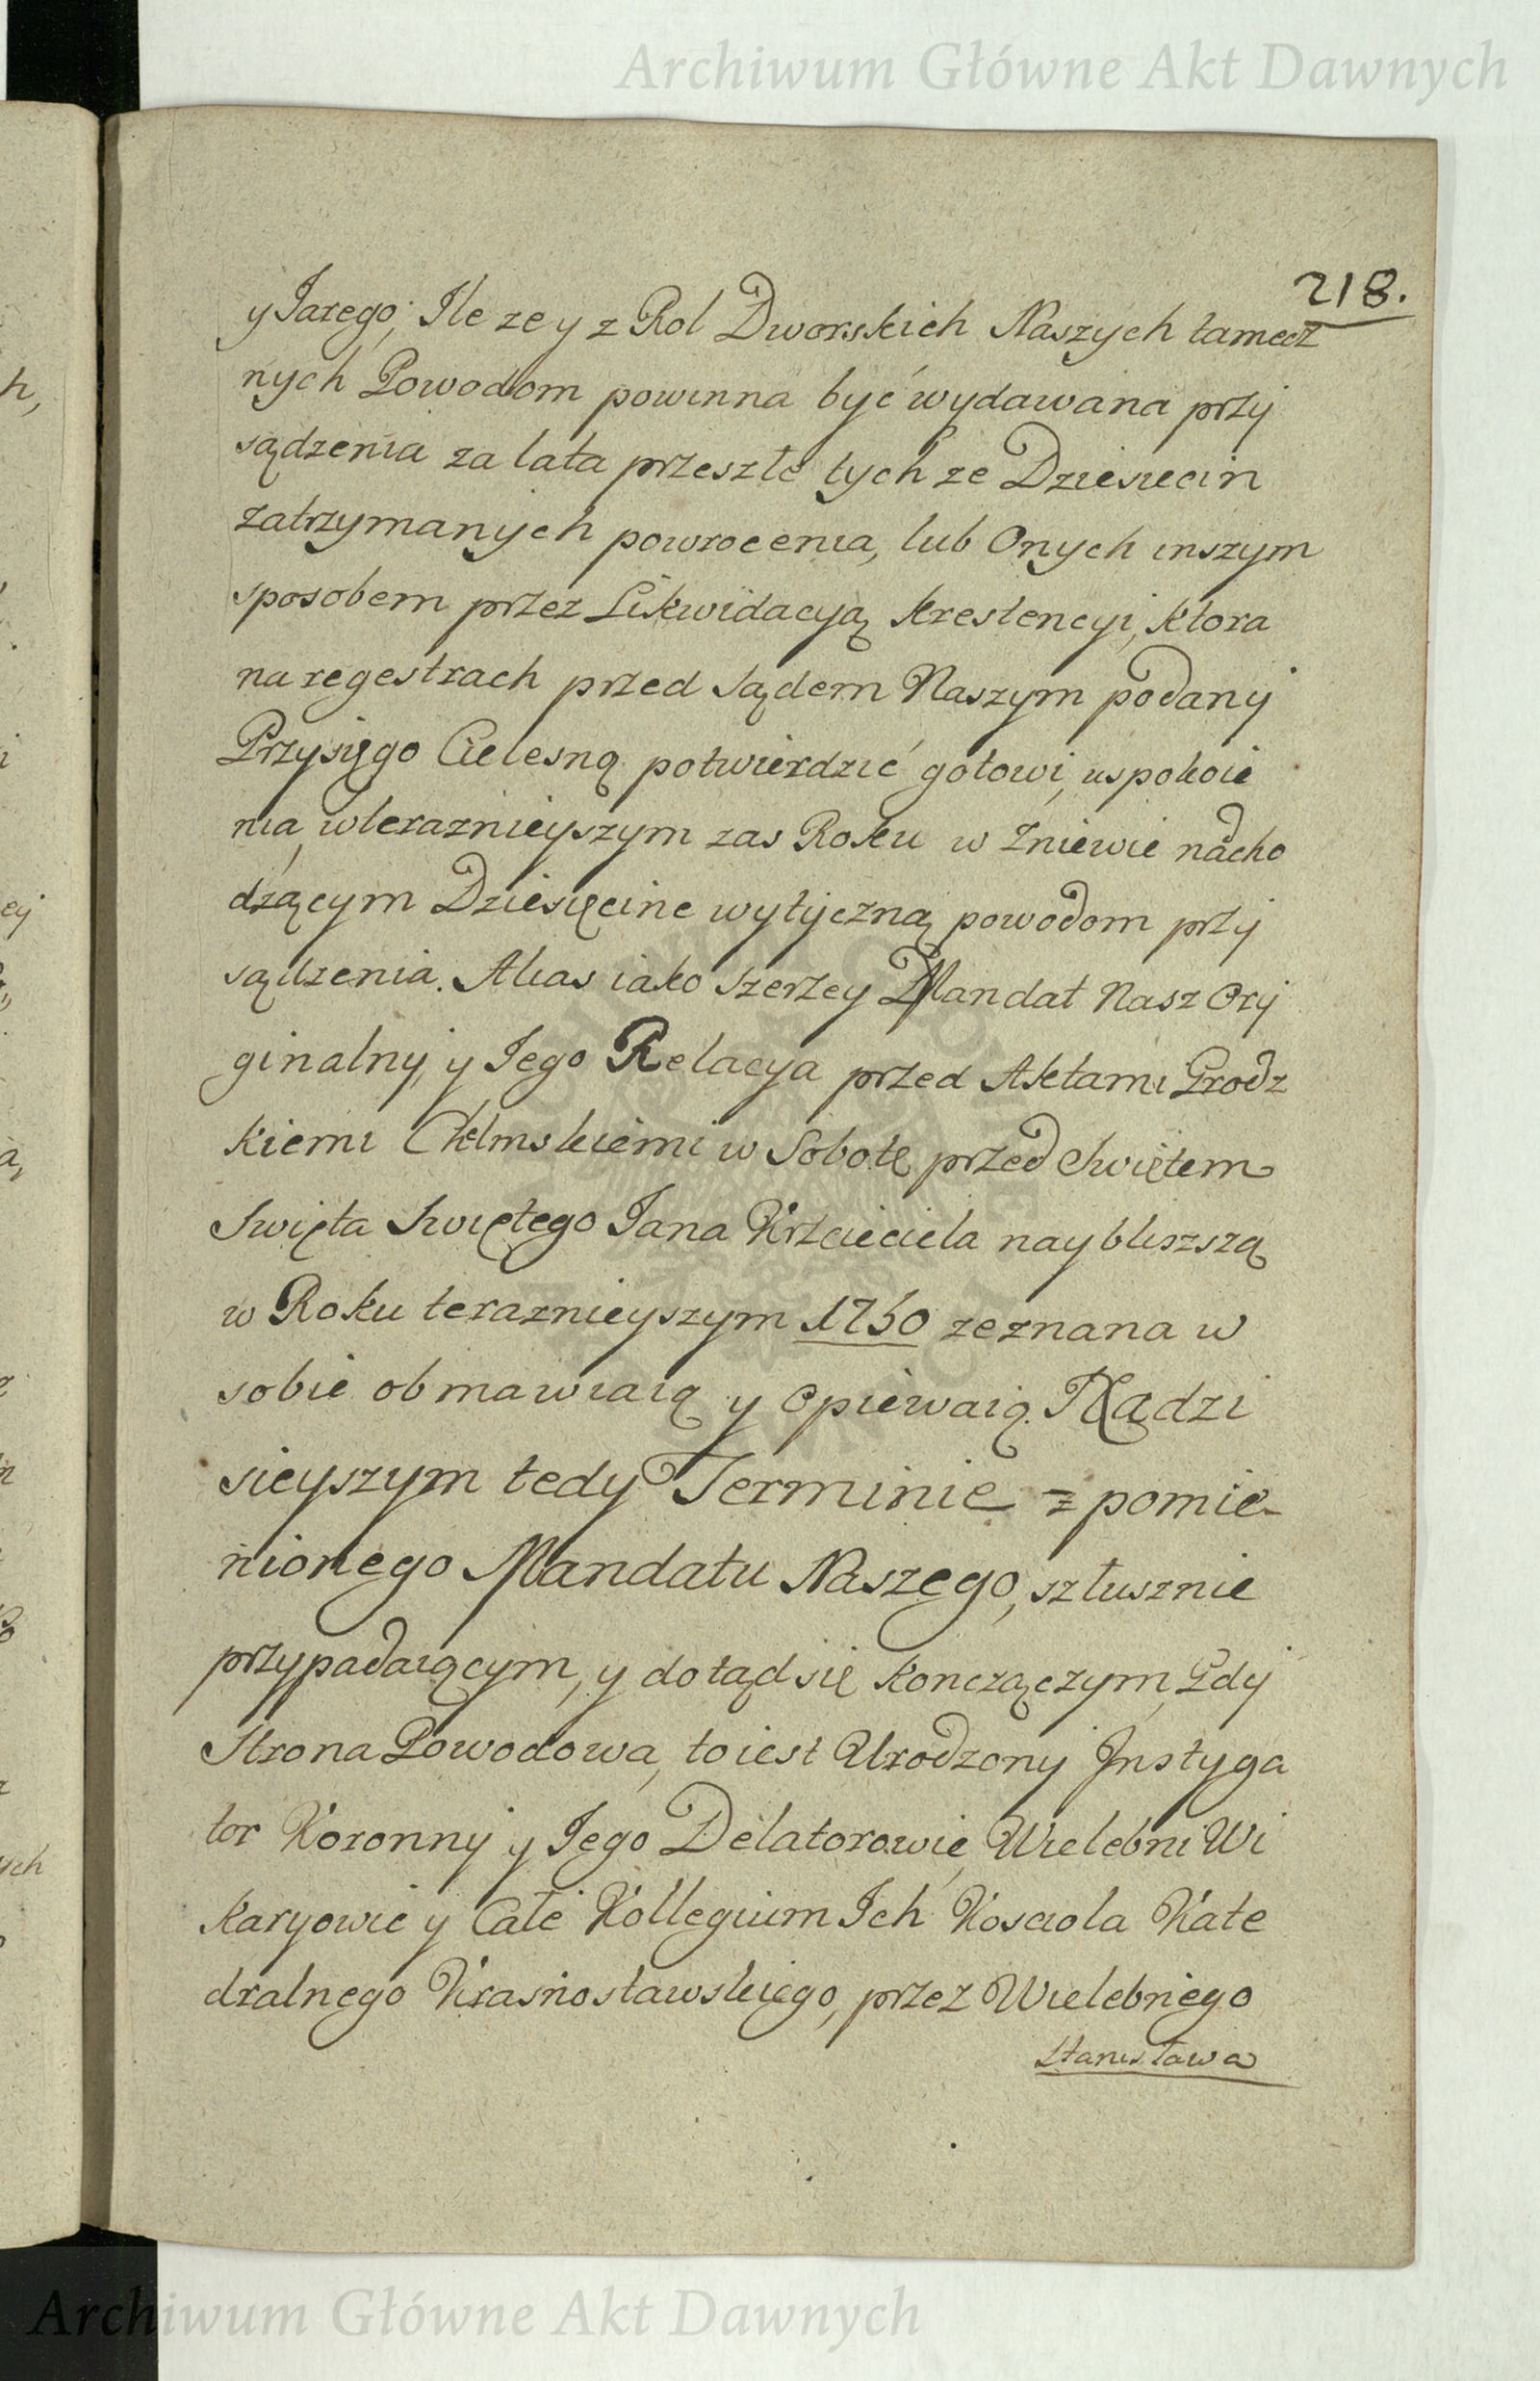 Archiwum Główne Akt Dawnych
218.
y Jarego, Ile ze y z Rol Dworskich Naszych tamecz
nych Powodom powinna być wydawana przy
sądzenia za lata przeszłe tych ze Dziesiecin
zatrzymanych powrocenia, lub Onych inszym
sposobem przez Likwidacyą krestencyi, ktora
na regestrach przed Sądem Naszym podany
Przysięgo Cielesną potwierdzić gotowi, uspokoie
nia, wterazniejszym zas Roku w Zniewie nadcho
dzącym Dziesięcine wytyczną powodom przy
sądzenia. Alias iako szerzey Mandat Nasz Ory
ginalny, y Jego Relacya przed Aktami Grodz
kiemi Chełmskiemi w Sobotę przed Swiętem
Swięta Swiętego Jana Krzciciela naybliszszą
w Roku terazniejszym 1760 zeznana w
sobie obmawiaią y opiewaią. Nadzi
sieyszym tedy Terminie z pomie-
nionego Mandatu Naszego, szłusznie
przypadaiącym, y dotąd się konczączym, Gdy
Strona Powodowa, to iest Urodzony Instyga
tor Koronny y Jego Delatorowie, Wielebni Wi
karyowie y Całe Kollegium Ich Koscioła Kate
dralnego Krasnostawskiego, przez Wielebnego
Stanisława
Archiwum Główne Akt Dawnych